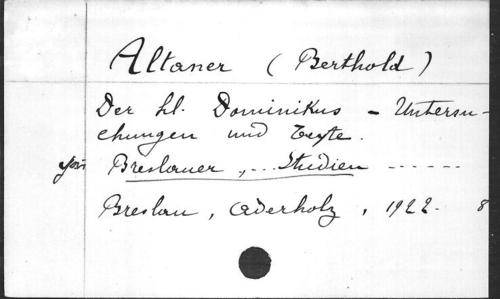 Altaner (Berthold)
Der hl. Dominikus - Untersu-
chungen und Texte.
Breslauer, ... Studien ------
Breslau, Aderholz, 1922. 8